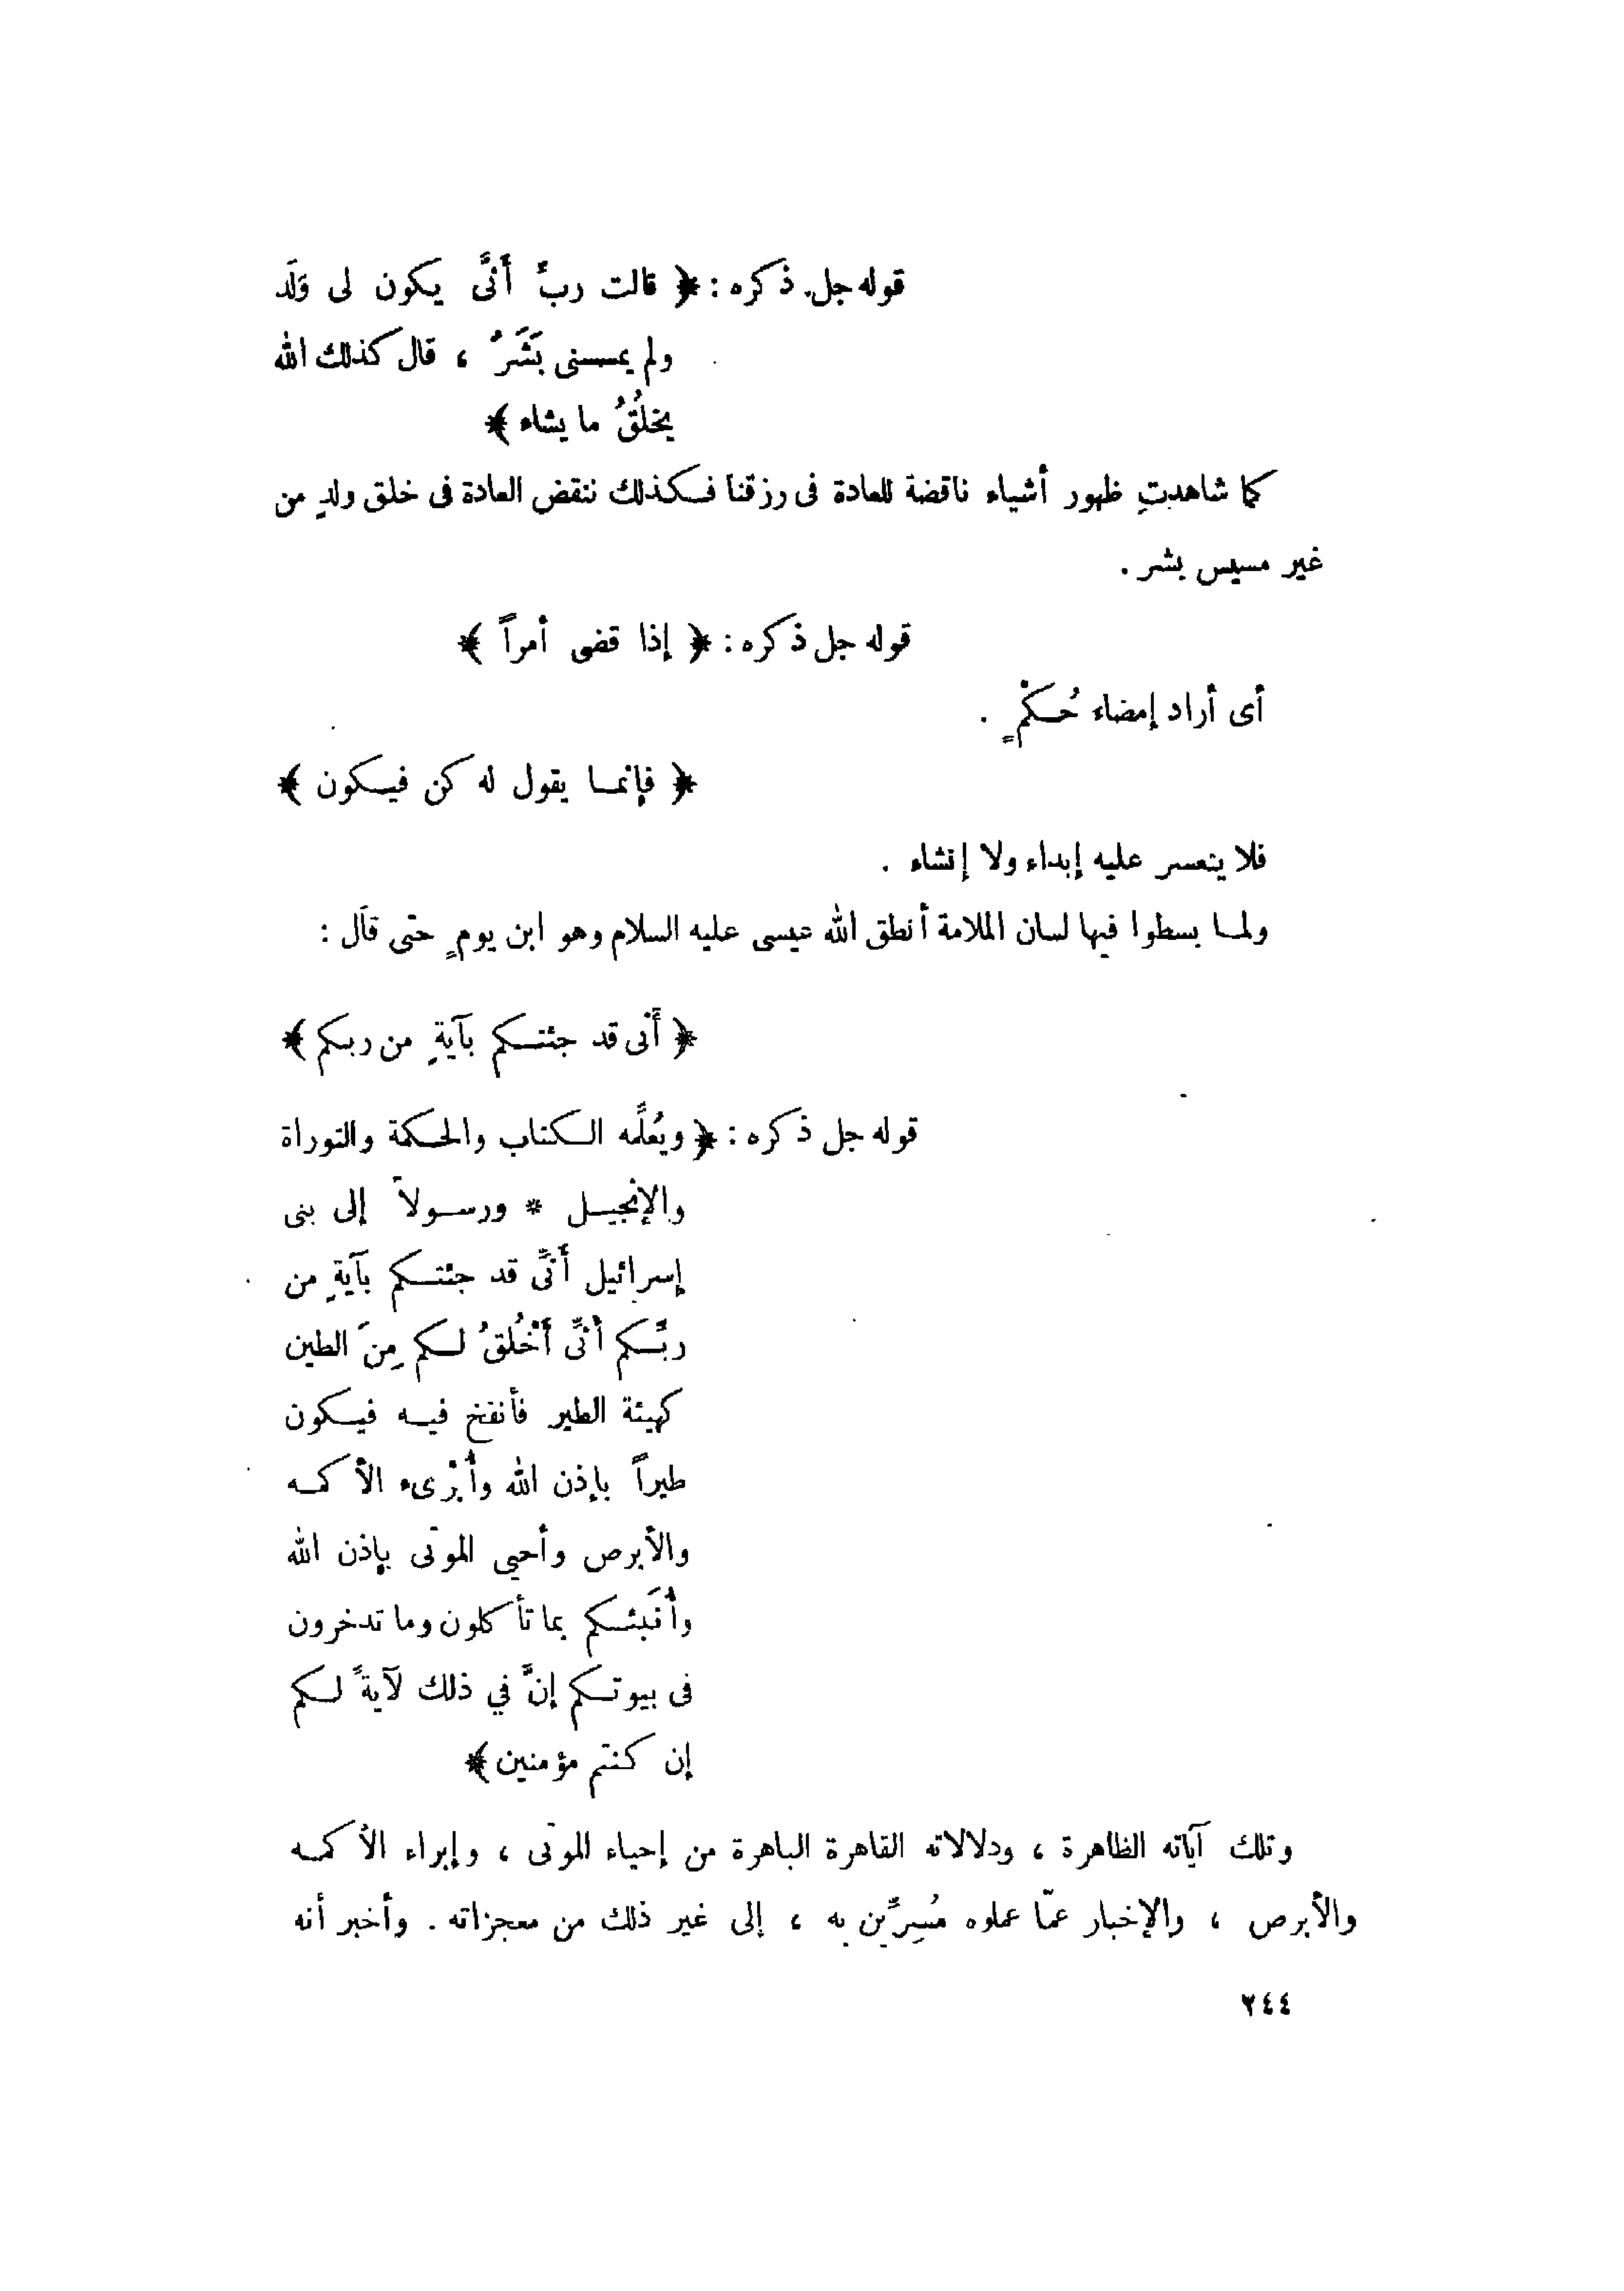 قوله جل ذكره : ﴿ قالت ربِّ أَنَّى يكون لى وَلَد
ولم يمسسنى بَشَرٌ ، قال كذلك الله
يخلُقُ ما يشاء ﴾
كما شاهدتِ ظهور أشياء ناقضة للعادة فى رزقنا فكذلك ننقض العادة فى خلق ولدٍ من
غير مسيس بشر .
قوله جل ذكره : ﴿ إذا قضى أمراً ﴾
أى أراد إمضاء حُكْمٍ .
﴿ فإنما يقول له كن فيكون ﴾
فلا يتعسر عليه إبداء ولا إنشاء .
ولما بسطوا فيها لسان الملامة أنطق الله عيسى عليه السلام وهو ابن يومٍ حتى قال :
﴿ أَنى قد جئتكم بآيةٍ من ربكم ﴾
قوله جل ذكره : ﴿ ويُعَلِّمه الكتاب والحكمة والتوراة
والإنجيل * ورسولاً إلى بنى
إسرائيل أَنِّى قد جئتكم بآيةٍ من
ربِّكم أَنِّى أَخْلُقُ لكم مِنَ الطين
كهيئة الطير فأنفخ فيه فيكون
طيراً بإذن الله وأُبْرِىء الأكمه
والأبرص وأحيى الموتى بإذن الله
وأُنَبئكم بما تأكلون وما تدخرون
فى بيوتكم إنَّ في ذلك لآيةً لكم
إن كنتم مؤمنين ﴾
وتلك آياته الظاهرة ، ودلالاته القاهرة الباهرة من إحياء الموتى ، وإبراء الأكمه
والأبرص ، والإخبار عمّا عملوه مُسِرِّين به ، إلى غير ذلك من معجزاته . وأخبر أنه
٢٤٤